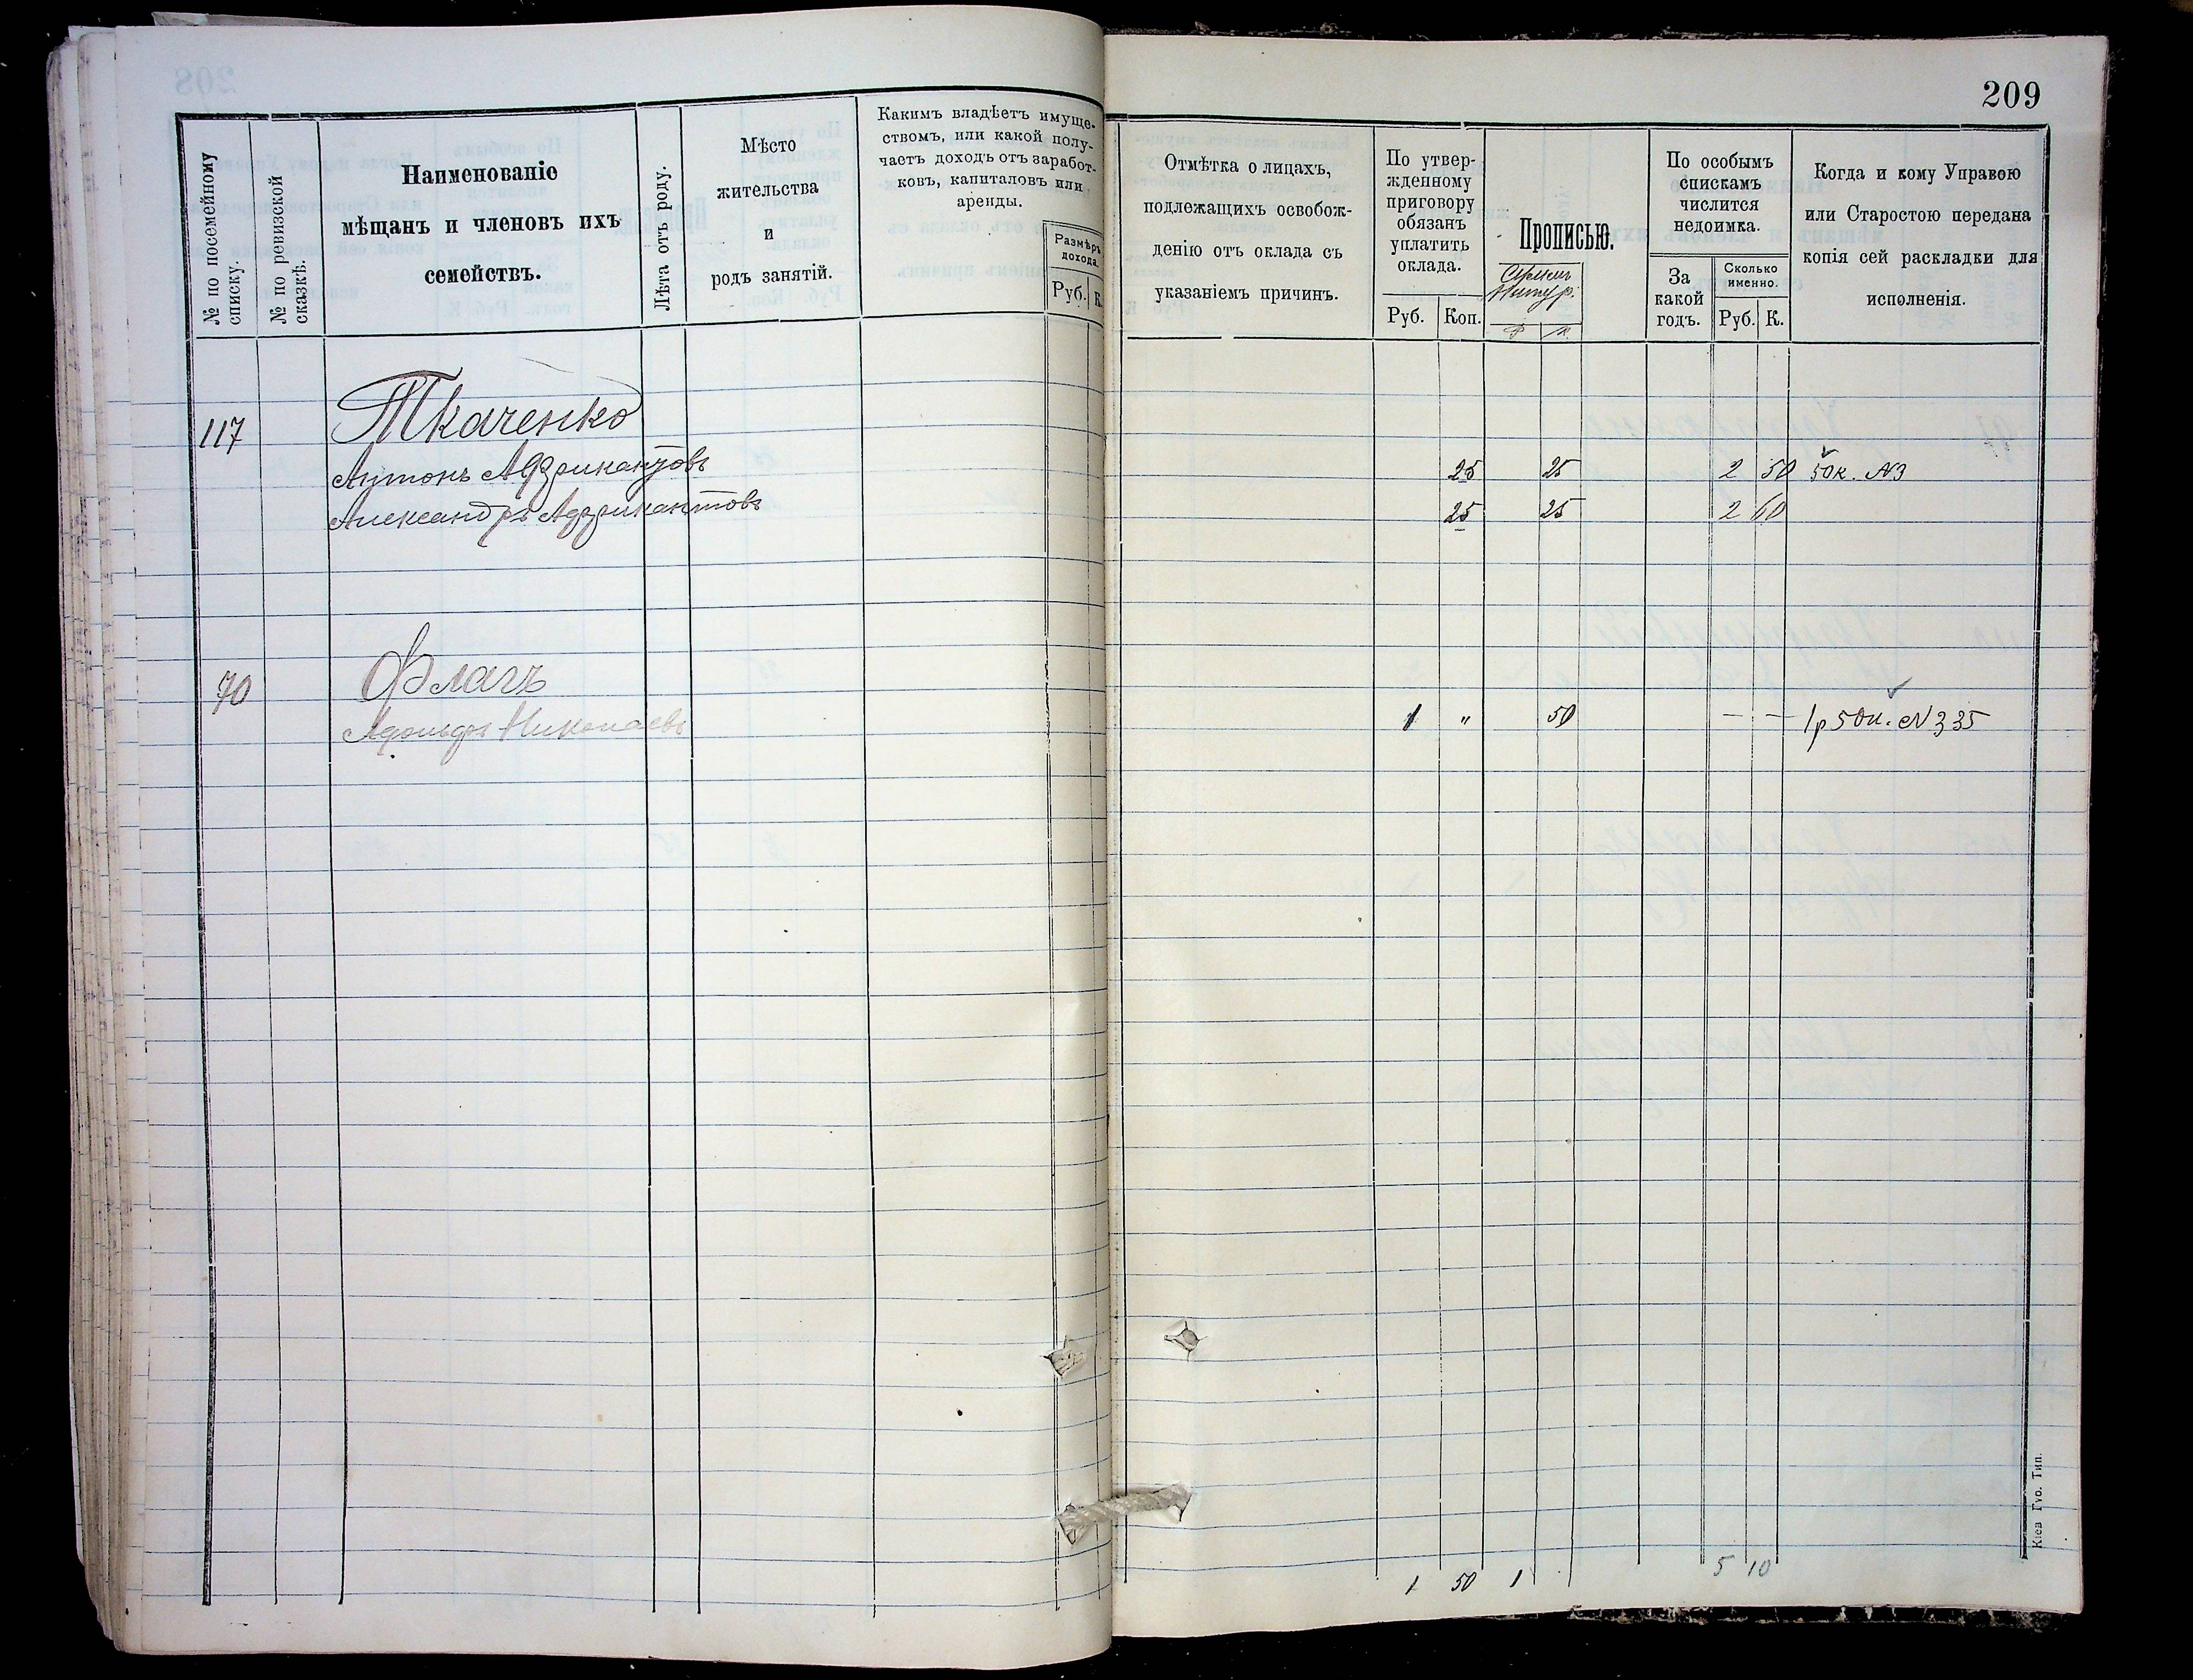 209
№ по посемейному списку.
№ по ревизской сказкѣ.
Наименованіе
мѣщанъ и членовъ ихъ
семействъ.
Лѣта отъ роду.
Мѣсто
жительства
и
родъ занятій.
Какимъ владѣетъ имуще-
ствомъ, или какой полу-
чаетъ доходъ отъ заработ-
ковъ, капиталовъ или
аренды.
Размѣръ
дохода.
Руб. К.
Отмѣтка о лицахъ,
подлежащихъ освобож-
денію отъ оклада съ
указаніемъ причинъ.
По утвер-
жденному
приговору
обязанъ
уплатить
оклада.
Руб. Коп.
Прописью.
По особымъ
спискамъ
числится
недоимка.
За
какой
годъ.
Сколько
именно.
Руб. К.
Когда и кому Управою
или Старостою передана
копія сей раскладки для
исполненія.
117 Ткаченко
Антонъ Африкантовъ 25 25 2 50 50к. №3
Александръ Африкантовъ 25 25 2 60
70 Флагъ
Адольфъ Николаевъ 1 " 50 — — 1р 50к. №335
1 50 1 5 10
Кіев Губ. Тип.